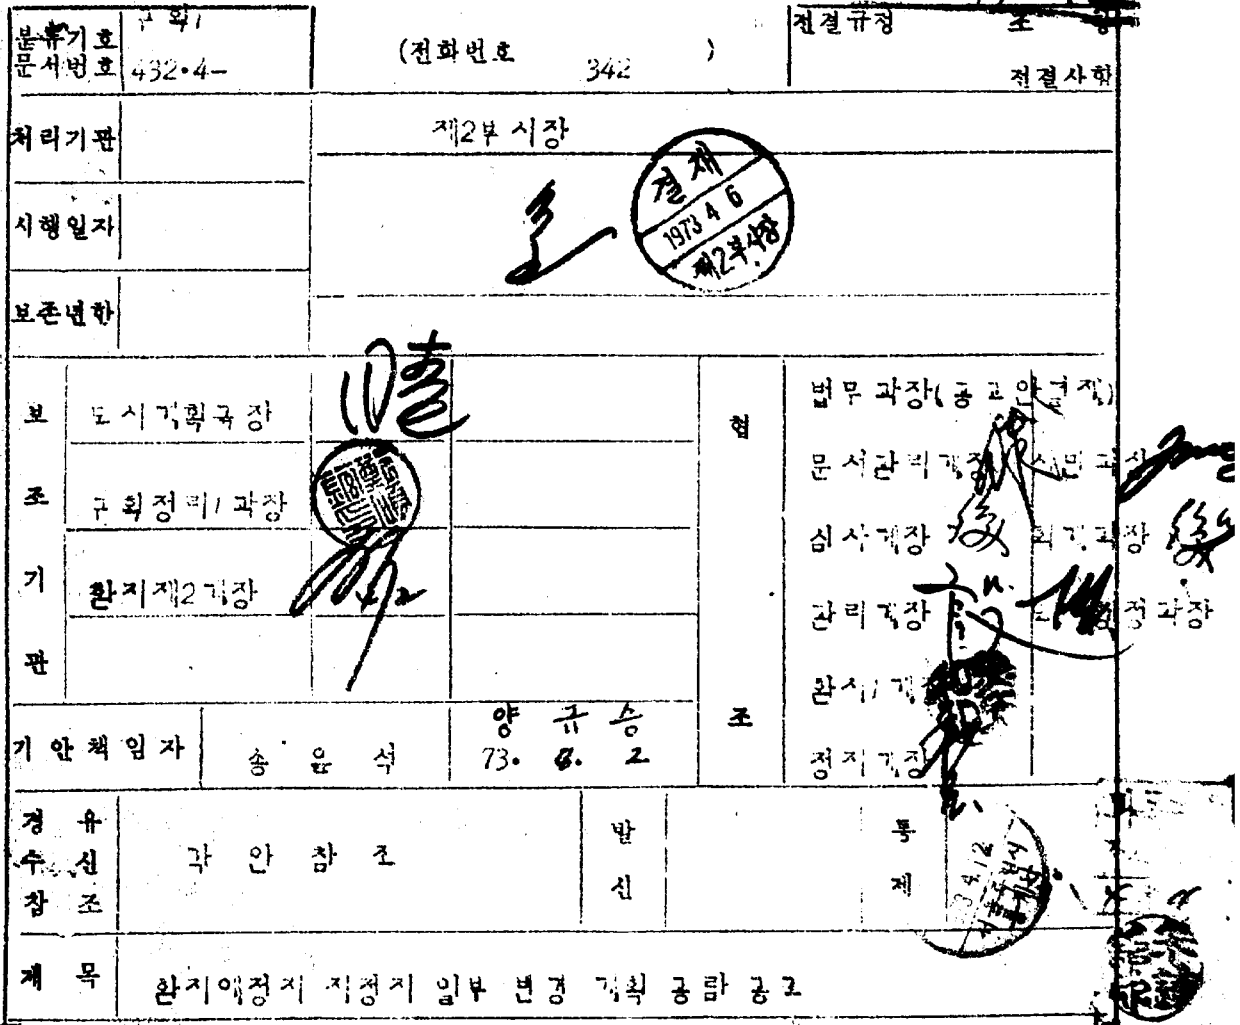 분류기호
문서번호
구획1
432·4-
(전화번호 342 )
전결규정 조 항
전결사항
처리기관
제2부시장
시행일자
결재
1973 4 6
제2부시장
보존년한
보조기관
도시계획국장
구획정리1과장
환지제2계장
협조
법무과장(공고안결재)
문서관리계장
심사계장
관리계장
정지계장
기안책임자
송윤석
양규승
73. 2
경유
수신
참조
각안참조
발신
통제
제목
환지예정지 지정지 일부 변경 계획 공람 공고